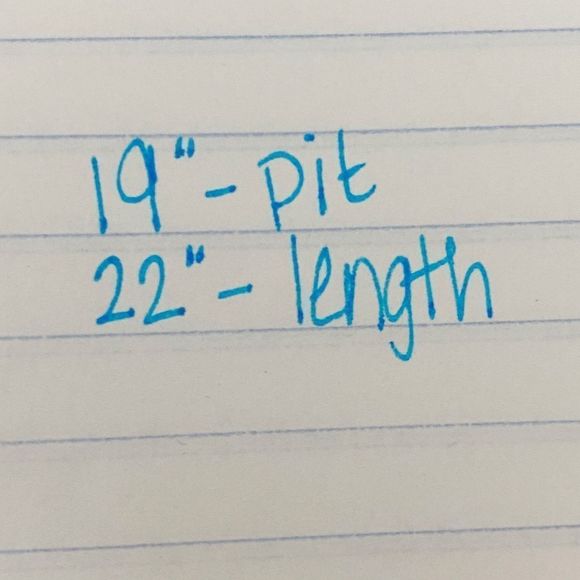 19" - pit
22" - length